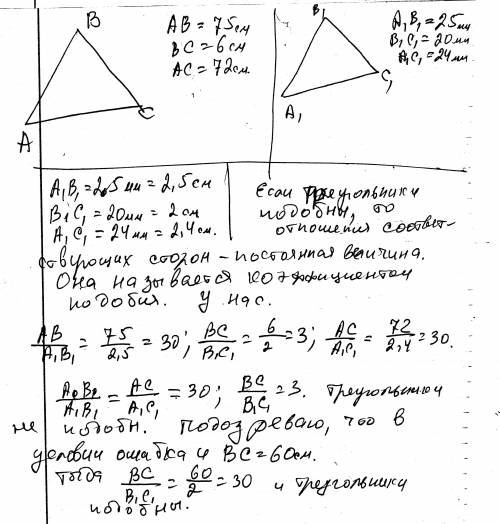 B
A
C
AB = 75см
BC = 6см
AC = 72см.
B₁
A₁
C₁
A₁B₁ = 25мм
B₁C₁ = 20мм
A₁C₁ = 24мм.
A₁B₁ = 25мм = 2,5см
B₁C₁ = 20мм = 2см
A₁C₁ = 24мм = 2,4см.
Если треугольники
подобны, то
отношения соответ-
ствующих сторон - постоянная величина.
Она называется коэффициентом
подобия. У нас.
AB/A₁B₁ = 75/2,5 = 30; BC/B₁C₁ = 6/2 = 3; AC/A₁C₁ = 72/2,4 = 30.
AB/A₁B₁ = AC/A₁C₁ = 30; BC/B₁C₁ = 3. Треугольники
не подобн. Подозреваю, что в
условии ошибка и BC = 60см.
Тогда BC/B₁C₁ = 60/2 = 30 и треугольники
подобны.